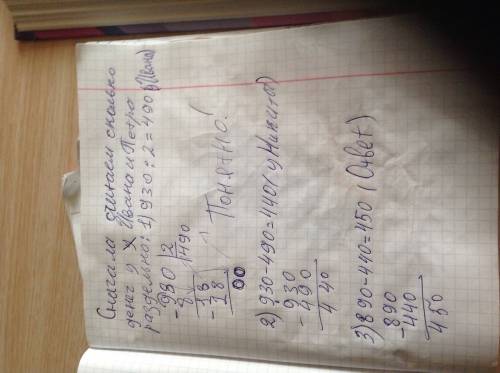 Сначала считаем сколько
денег у Ивана и Петра
раздельно: 1) 930 : 2 = 490 (у Ивана)
930 | 2
- 8 | 490
- 18
18
00
Понятно!
2) 930 - 490 = 440 (у Никиты)
930
- 490
440
3) 890 - 440 = 450 (Ответ)
890
- 440
450